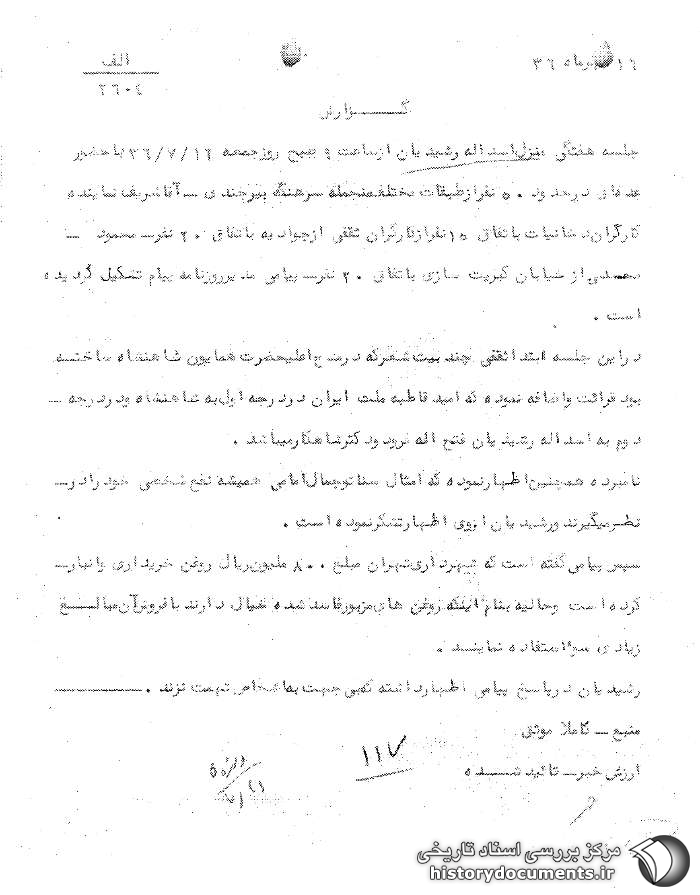 الف
۲۶۰۴
۱۶ ماه ۳۶
گزارش
جلسه هفتگی منزل اسداله رشیدیان از ساعت ۹ صبح روز جمعه ۳۶/۷/۱۲ با حضور
عده‌ای در حدود ۵۰ نفر از طبقات مختلف منجمله سرهنگ بیرجندی – آقا شریف نماینده
کارگران دخانیات باتفاق ۱۵ نفر از کارگران ثقفی از جوادیه باتفاق ۲۰ نفر – محمود –
محمدی از خیابان کبریت سازی باتفاق ۲۰ نفر – پیامی مدیر روزنامه پیام تشکیل گردیده
است .
در این جلسه ابتدا ثقفی چند بیت شعر که در مدح اعلیحضرت همایون شاهنشاه ساخته
بود قرائت و اضافه نموده که امید قاطبه ملت ایران در درجه اول به شاهنشاه و در درجه –
دوم به اسداله رشیدیان فتح اله فرود و دکتر شاهکار میباشد .
نامبرده همچنین اظهار نموده که امثال سناتور جمال امامی همیشه نفع شخصی خود را در –
نظر میگیرند و رشیدیان از وی اظهار تشکر نموده است .
سپس پیامی گفته است که شهرداری تهران مبلغ ۸۰۰ ملیون ریال روغن خریداری و انبار –
کرده است و حالیه بنام اینکه روغن های مزبور فاسد شده خیال دارند با فروش آن مبالغ
زیادی سوء استفاده نمایند .
رشیدیان در پاسخ پیامی اظهار داشته که بی جهت به اشخاص تهمت نزند .
منبع – کاملا موثق
ارزش خبر – تائید شده
۱۱۷
مرکز بررسی اسناد تاریخی
historydocuments.ir